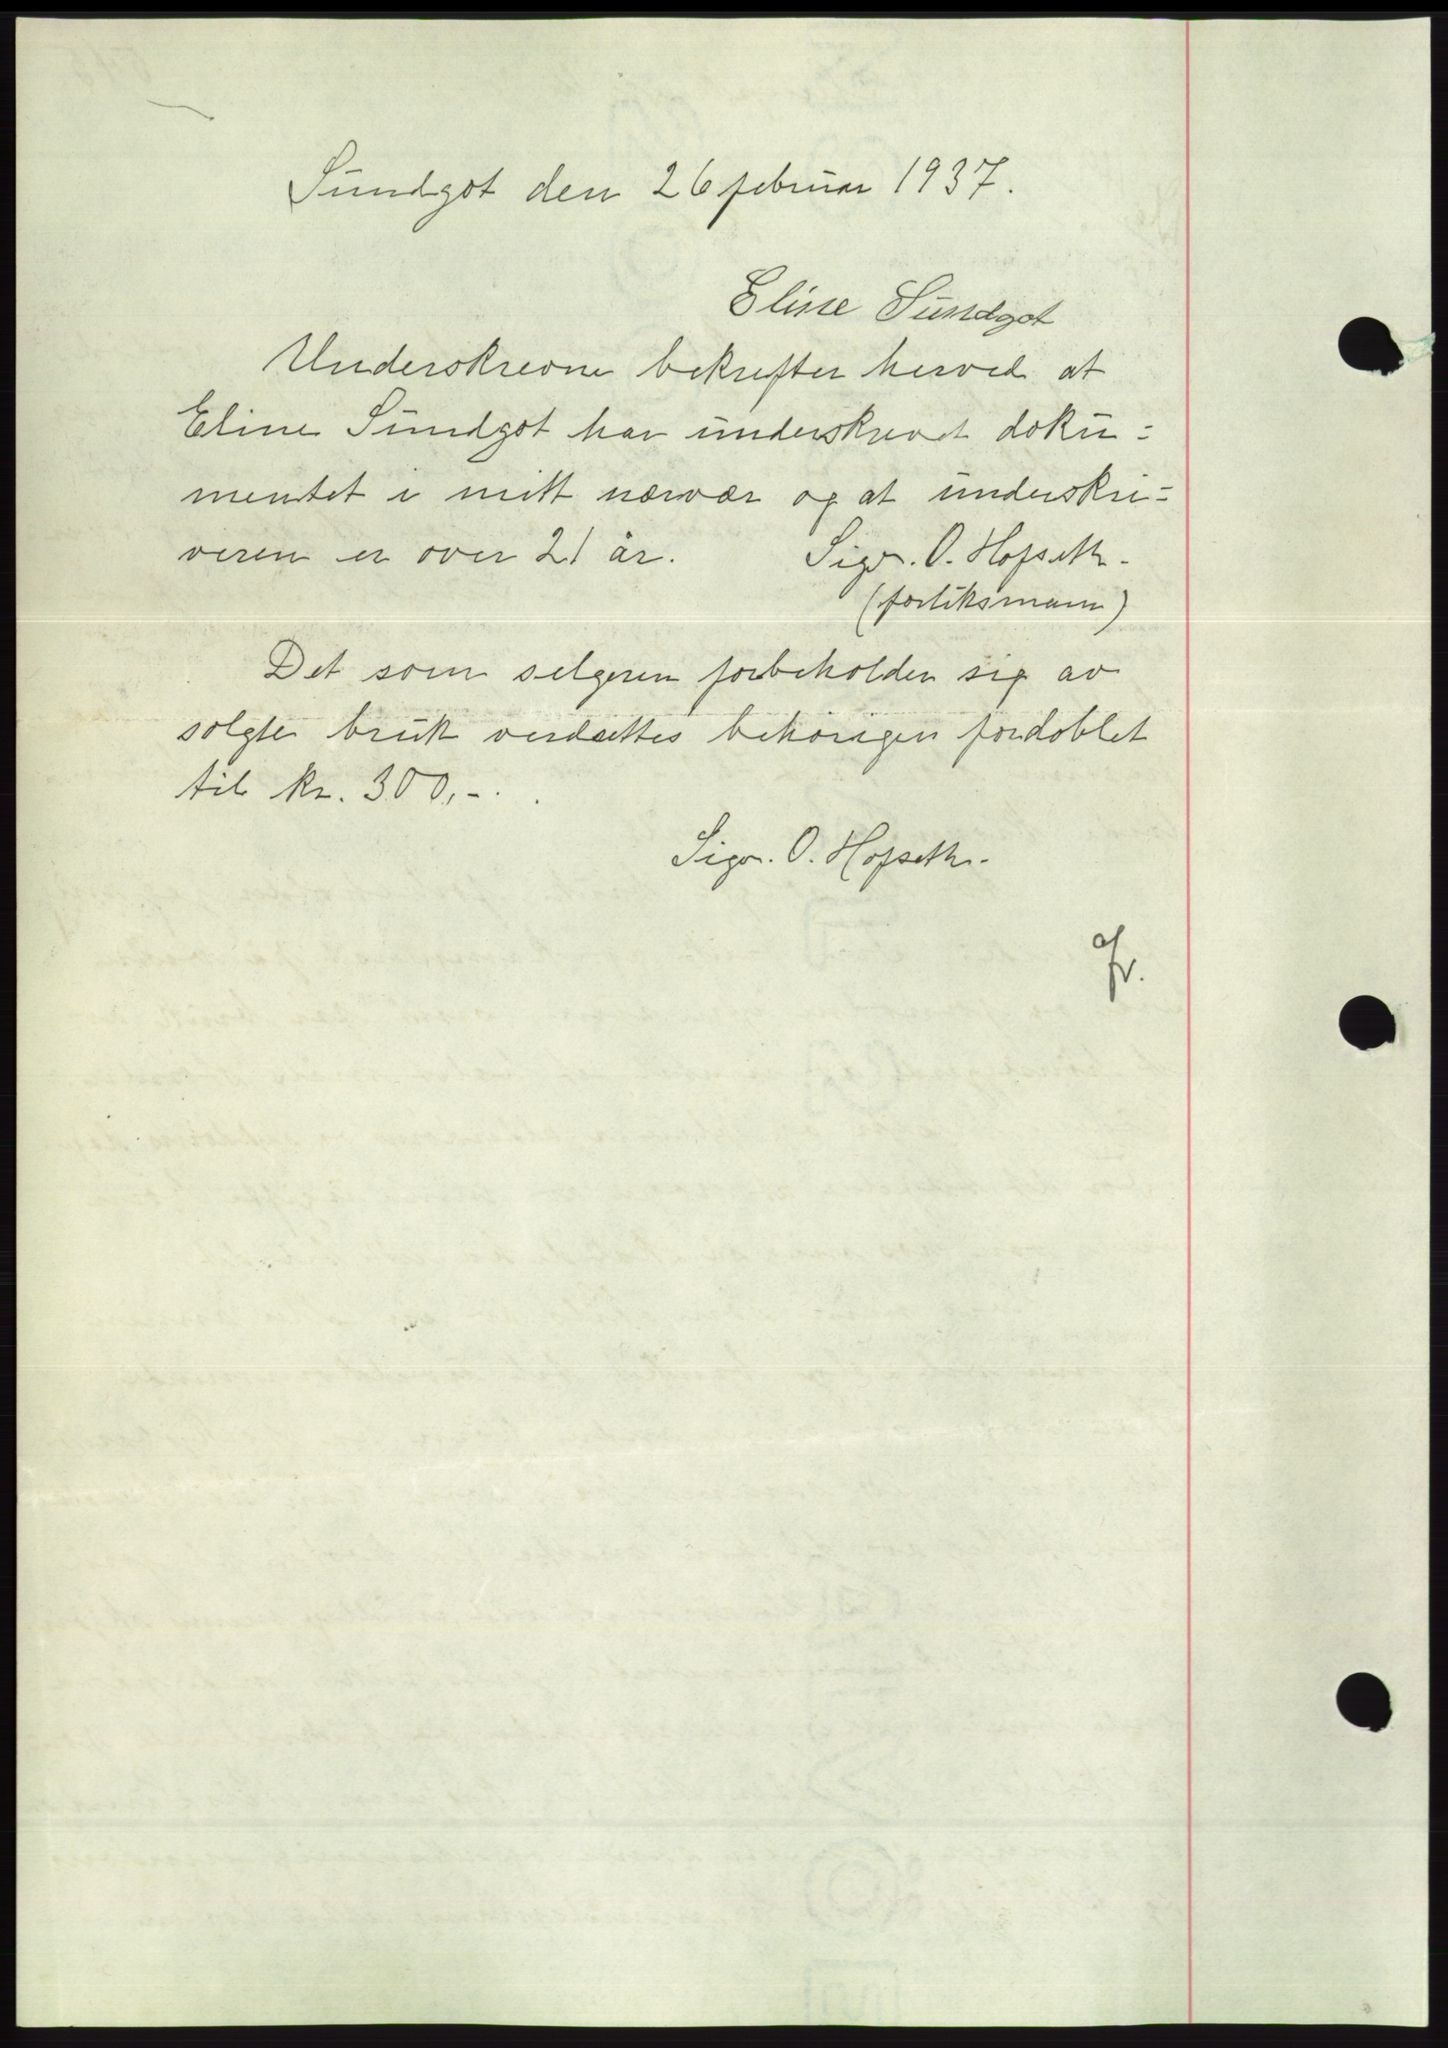 Sundgot den 26 februar 1937.
Eline Sundgot
Underskrevne bekrefter herved at
Eline Sundgot har underskrevet doku=
mentet i mitt nærvær og at underskri=
veren er over 21 år. Sigv. O. Hofseth.
(forliksmann)
Det som selgeren forbeholder sig av
solgte bruk verdsettes behørigen fordoblet
til kr. 300,-.
Sigv. O. Hofseth.